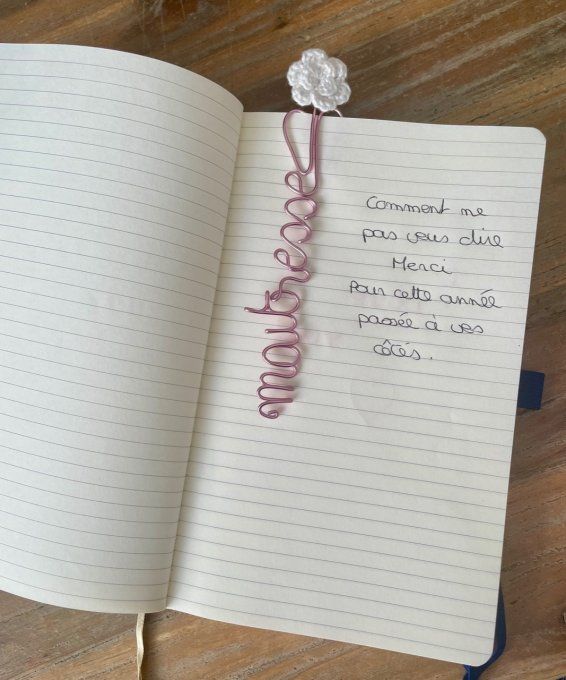 maîtresse
Comment ne
pas vous dire
Merci
Pour cette année
passée à vos
côtés.